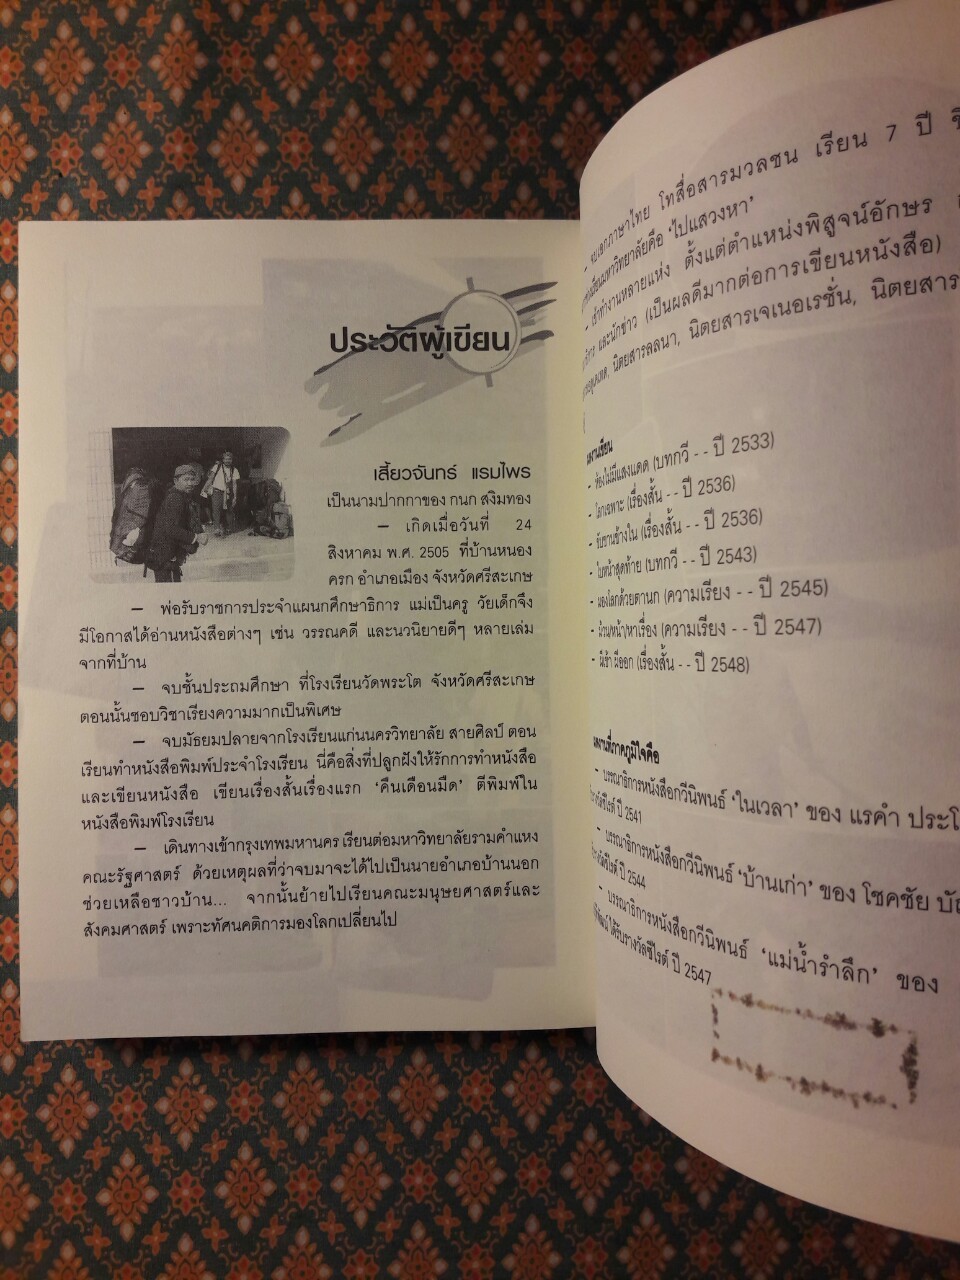 ประวัติผู้เขียน
เสี้ยวจันทร์ แรมไพร
เป็นนามปากกาของ กนก สงิมทอง
– เกิดเมื่อวันที่ 24
สิงหาคม พ.ศ. 2505 ที่บ้านหนอง
ครก อำเภอเมือง จังหวัดศรีสะเกษ
– พ่อรับราชการประจำแผนกศึกษาธิการ แม่เป็นครู วัยเด็กจึง
มีโอกาสได้อ่านหนังสือต่างๆ เช่น วรรณคดี และนวนิยายดีๆ หลายเล่ม
จากที่บ้าน
– จบชั้นประถมศึกษา ที่โรงเรียนวัดพระโต จังหวัดศรีสะเกษ
ตอนนั้นชอบวิชาเรียงความมากเป็นพิเศษ
– จบมัธยมปลายจากโรงเรียนแก่นนครวิทยาลัย สายศิลป์ ตอน
เรียนทำหนังสือพิมพ์ประจำโรงเรียน นี่คือสิ่งที่ปลูกฝังให้รักการทำหนังสือ
และเขียนหนังสือ เขียนเรื่องสั้นเรื่องแรก ‘คืนเดือนมืด’ ตีพิมพ์ใน
หนังสือพิมพ์โรงเรียน
– เดินทางเข้ากรุงเทพมหานคร เรียนต่อมหาวิทยาลัยรามคำแหง
คณะรัฐศาสตร์ ด้วยเหตุผลที่ว่าจบมาจะได้ไปเป็นนายอำเภอบ้านนอก
ช่วยเหลือชาวบ้าน... จากนั้นย้ายไปเรียนคณะมนุษยศาสตร์และ
สังคมศาสตร์ เพราะทัศนคติการมองโลกเปลี่ยนไป
– จบเอกภาษาไทย โทสื่อสารมวลชน เรียน 7 ปี
มหาวิทยาลัยคือ ‘ไปแสวงหา’
– เข้าทำงานหลายแห่ง ตั้งแต่ตำแหน่งพิสูจน์อักษร
และนักข่าว (เป็นผลดีมากต่อการเขียนหนังสือ)
นิตยสารลลนา, นิตยสารเจเนอเรชั่น, นิตยสาร
ผลงานเขียน
- ห้องไม่มีแสงแดด (บทกวี - - ปี 2533)
- โลกเฉพาะ (เรื่องสั้น - - ปี 2536)
- ขับขานข้างใน (เรื่องสั้น - - ปี 2536)
- ใบหน้าสุดท้าย (บทกวี - - ปี 2543)
- มองโลกด้วยตานก (ความเรียง - - ปี 2545)
- ม่าน/หน้า/หาเรื่อง (ความเรียง - - ปี 2547)
- ผีเข้า ผีออก (เรื่องสั้น - - ปี 2548)
ผลงานที่ภาคภูมิใจคือ
– บรรณาธิการหนังสือกวีนิพนธ์ ‘ในเวลา’ ของ แรคำ ประโ
ปี 2541
– บรรณาธิการหนังสือกวีนิพนธ์ ‘บ้านเก่า’ ของ โชคชัย บัณ
ปี 2544
– บรรณาธิการหนังสือกวีนิพนธ์ ‘แม่น้ำรำลึก’ ของ
ได้รับรางวัลซีไรต์ ปี 2547